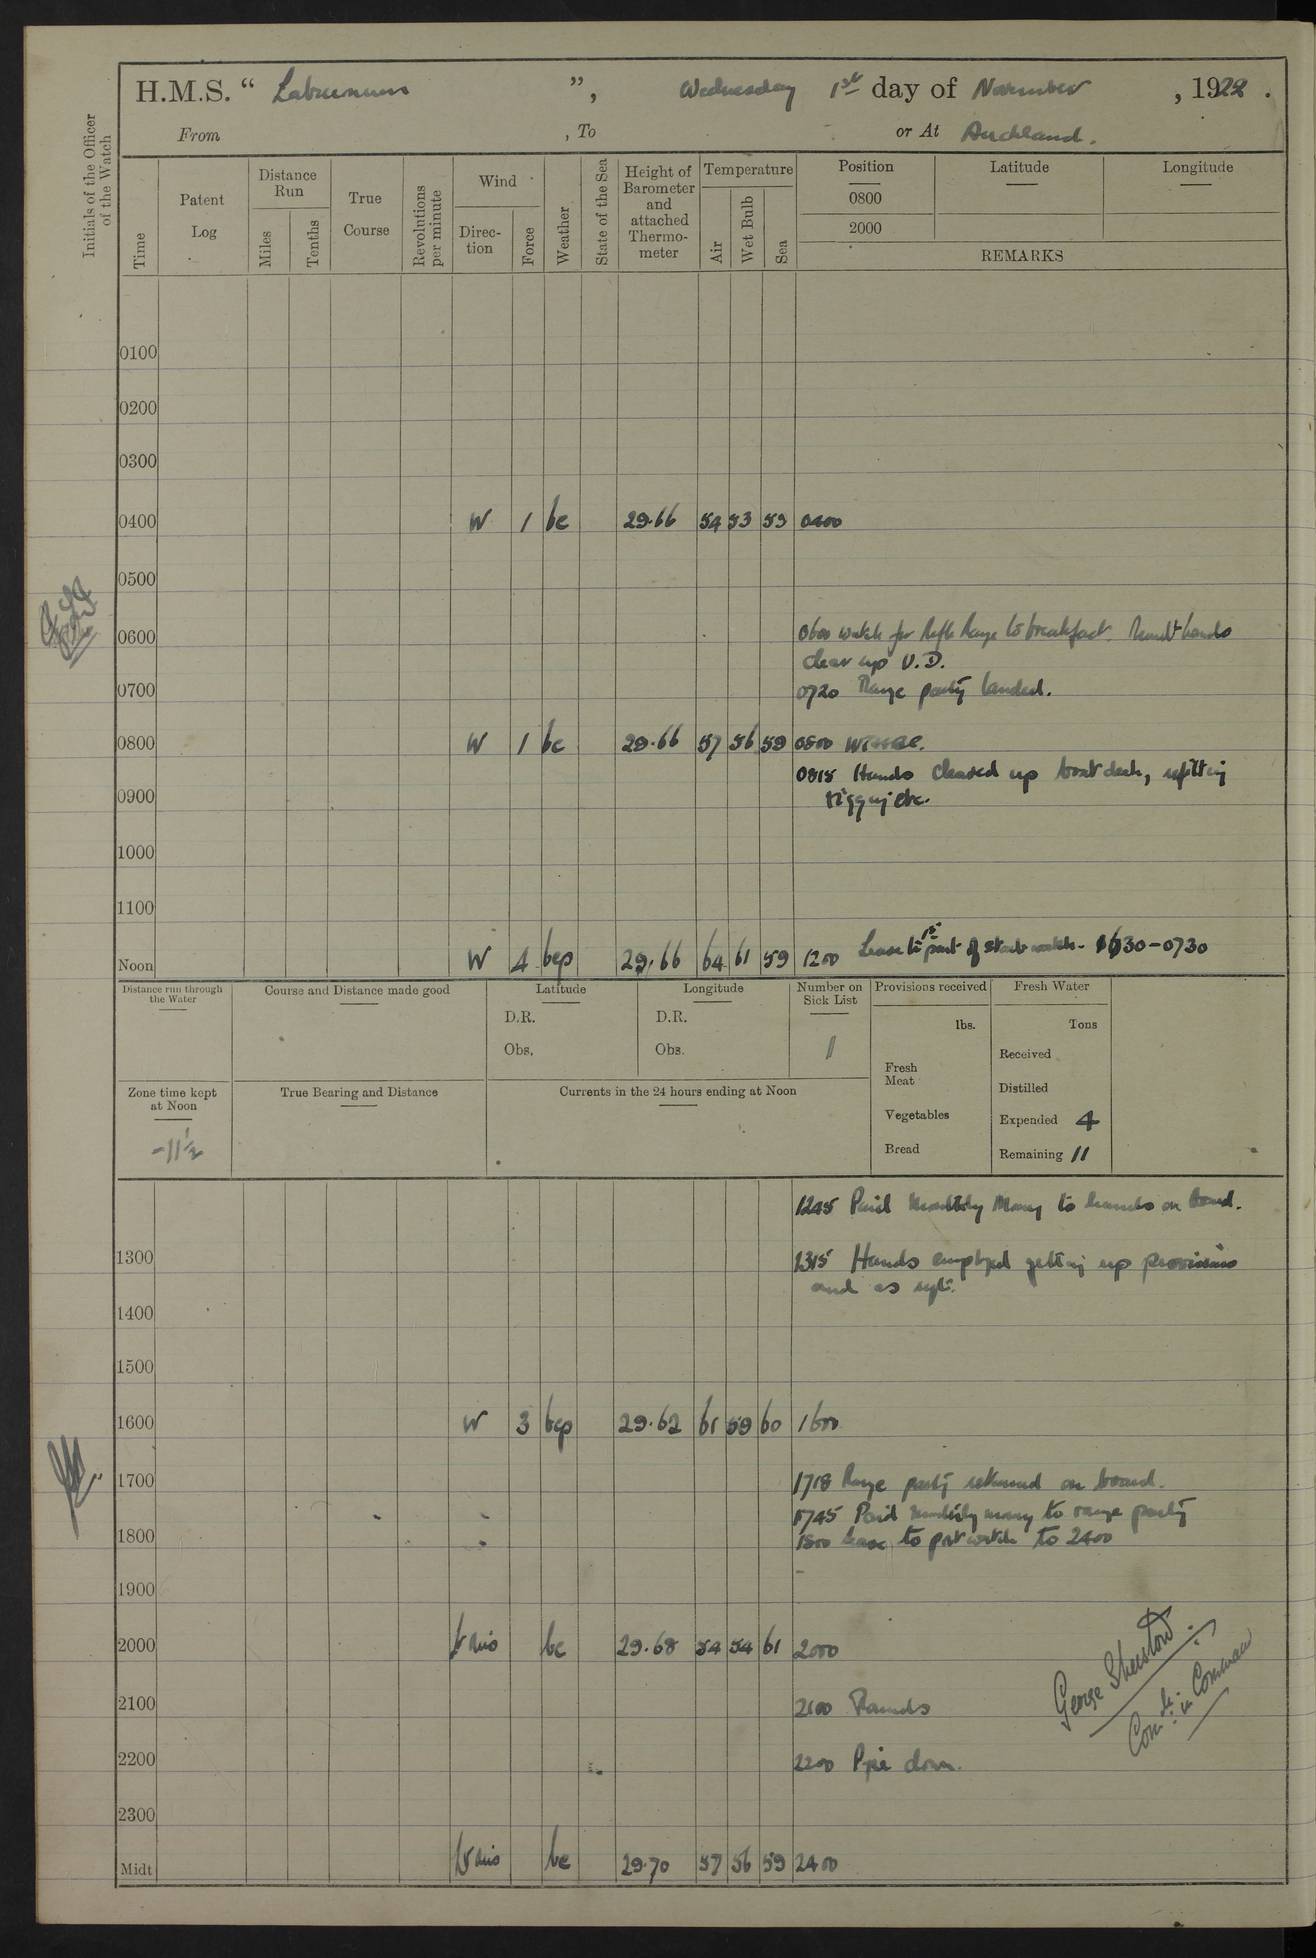 H.M.S. “ Laburnum ”, Wednesday 1st day of November , 1922 .
From , To or At Auckland.
Initials of the Officer of the Watch
Time
Patent Log
Distance Run
Miles
Tenths
True Course
Revolutions per minute
Wind
Direc-tion
Force
Weather
State of the Sea
Height of Barometer and attached Thermo-meter
Temperature
Air
Wet Bulb
Sea
Position Latitude Longitude
0800
2000
REMARKS
0100
0200
0300
0400 W 1 bc 29.66 54 53 59 0400
0500
0600 0600 Watch for Rifle Range to breakfast. Remdt hands
clear up U.D.
0700 0720 Range party landed.
0800 W 1 bc 29.66 57 56 59 0800
0815 Hands cleared up boat deck, refitting
0900 rigging etc.
1000
1100
Noon W 4 bcp 29.66 64 61 59 1200 Leave to 1st part of starb watch - 1630-0730
Distance run through the Water
Course and Distance made good
Latitude
D.R.
Obs.
Longitude
D.R.
Obs.
Number on Sick List
11
Provisions received
lbs.
Fresh Meat
Vegetables
Bread
Fresh Water
Tons
Received
Distilled
Expended 4
Remaining 11
Zone time kept at Noon
-11½
True Bearing and Distance
Currents in the 24 hours ending at Noon
1245 Paid Monthly Money to hands on board.
1300 1315 Hands employed getting up provisions
and as reqte.
1400
1500
1600 W 3 bcp 29.62 61 59 60 1600
1700 1718 Range party returned on board.
1745 Paid monthly money to range party
1800 1800 Leave to port watch to 2400
1900
2000 bc 29.68 54 54 61 2000
2100 2100 Rounds
2200 2200 Pipe down.
2300
Midt bc 29.70 57 56 59 2400
George
Comdr. in Command